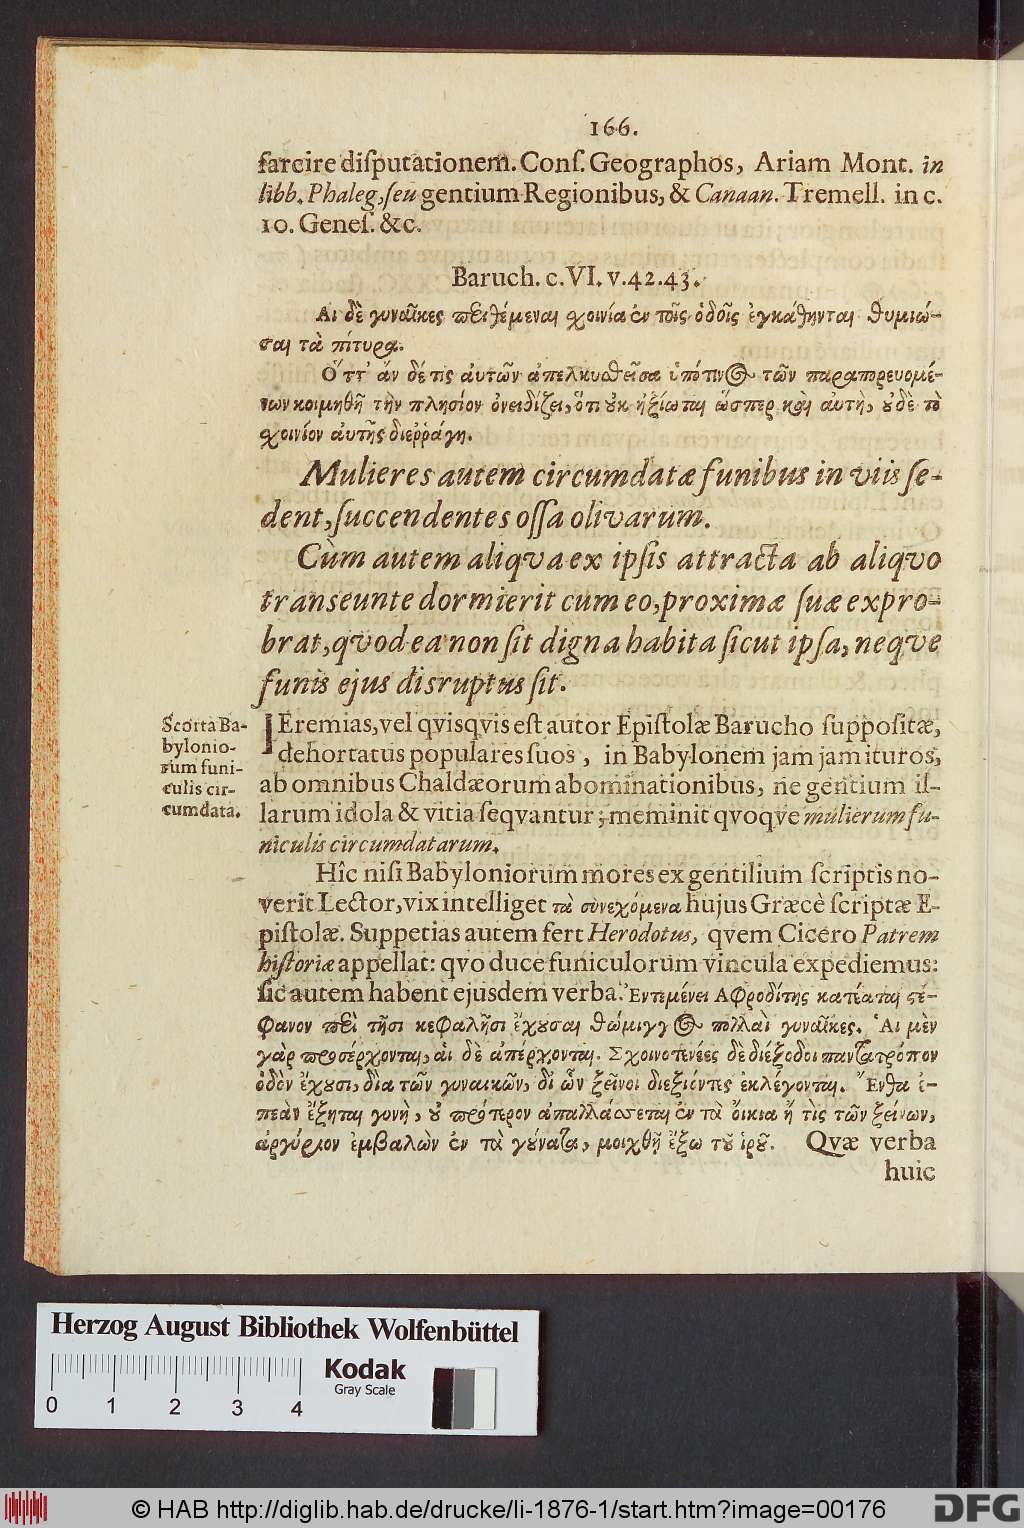 166.
farcire diſputationem. Conſ. Geographos, Ariam Mont. in
libb. Phaleg, ſeu gentium Regionibus, & Canaan. Tremell. in c.
10. Geneſ. &c.
Baruch. c. VI. v. 42. 43.
Αι δὲ γυναῖκες περιθέμεναι χοινία ἐν ταῖς ὁδοῖς ἐγκάθηνται θυμιώ-
σαι τὰ πίτυρα.
Ὅττ' ἄν δέ τις ἀυτῶν ἀπελκυσθεῖσα ὑπό τινος τῶν παραπορευομέ-
νων κοιμηθῆ τὴν πλησίον ὀνειδίζει, ὅτι ὐκ ἠξίωται ὥσπερ καὶ ἀυτὴ, ὐδὲ τὸ
χοινίον ἀυτῆς διεῤῥάγη.
Mulieres autem circumdatæ funibus in viis ſe-
dent, ſuccendentes oſſa olivarum.
Cùm autem aliqva ex ipſis attracta ab aliqvo
transeunte dormierit cum eo, proximæ ſuæ expro-
brat, qvod ea non ſit digna habita ſicut ipſa, neqve
funis ejus disruptus ſit.
Scorta Ba-
bylonio-
rum funi-
culis cir-
cumdata.
JEremias, vel qvisqvis eſt autor Epiſtolæ Barucho ſuppoſitæ,
dehortatus populares ſuos, in Babylonem jam jam ituros,
ab omnibus Chaldæorum abominationibus, ne gentium il-
larum idola & vitia ſeqvantur; meminit qvoqve mulierum fu-
niculis circumdatarum.
Hîc niſi Babyloniorum mores ex gentilium ſcriptis no-
verit Lector, vix intelliget τὰ συνεχόμενα hujus Græcè ſcriptæ E-
piſtolæ. Suppetias autem fert Herodotus, qvem Cicero Patrem
hiſtoriæ appellat: qvo duce funiculorum vincula expediemus:
ſic autem habent ejusdem verba. Ἐντεμένει Αφροδίτης κατέαται στέ-
φανον περὶ τῆσι κεφαλῆσι ἔχουσαι θώμιγγος πολλαὶ γυναῖκες. Ἁι μὲν
γὰρ προσέρχονται, ἁι δὲ ἀπέρχονται. Σχοινοτενέες δὲ διέξοδοι παντατρόπον
ὁδὸν ἔχουσι, δια τῶν γυναικῶν, δἰ ὧν ξεῖνοι διεξιόντες ἐκλέγονται. Ἔνθα ἐ-
πεὰν ἕζηται γυνὴ, ὐ πρότερον ἀπαλλάσσεται ἐν τὰ ὄικια ἤ τὶς τῶν ξείνων,
ἀργύριον ἐμβαλὼν ἐν τὰ γόυνατα, μοιχθῇ ἔξω τοῦ ἱροῦ. Qvæ verba
huic
Herzog August Bibliothek Wolfenbüttel
Kodak
Gray Scale
0 1 2 3 4
© HAB http://diglib.hab.de/drucke/li-1876-1/start.htm?image=00176
DFG